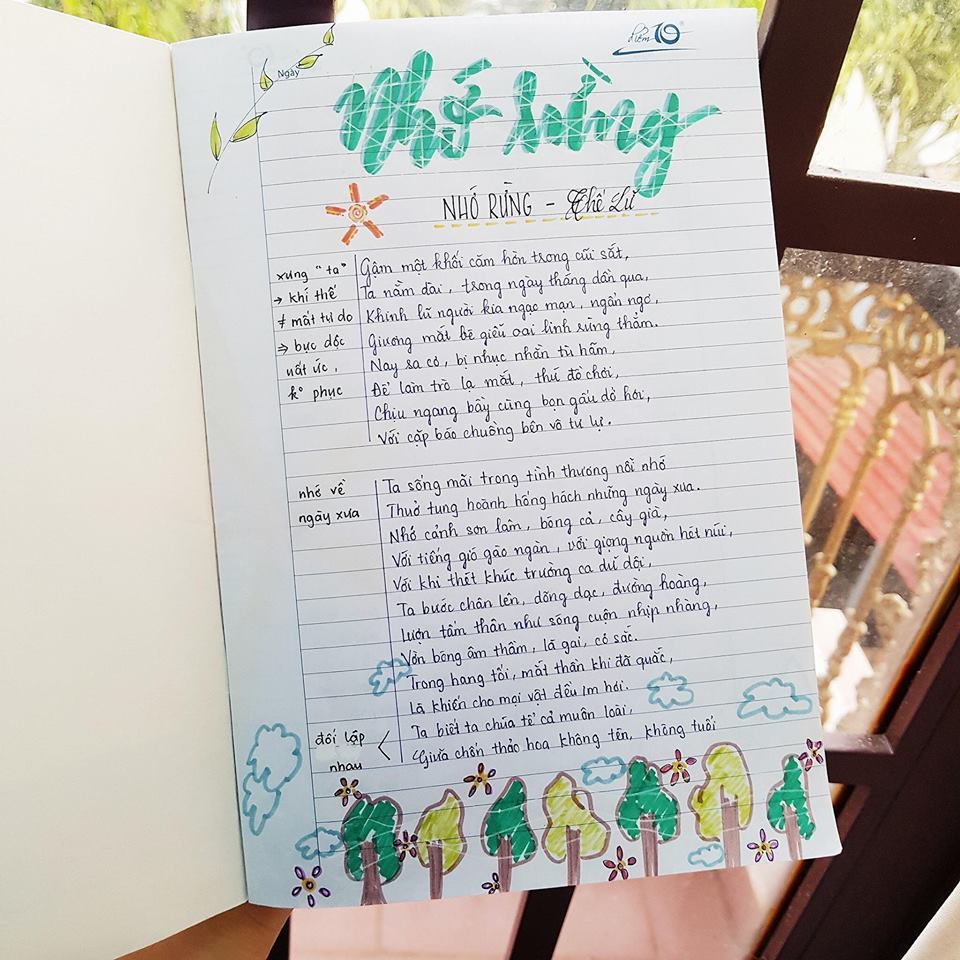 điểm 10
Ngày
Nhớ rừng
NHỚ RỪNG - Thế Lữ
xưng "ta"
→ khí thế
≠ mất tự do
⇒ bực dọc
uất ức,
k° phục
Gậm một khối căm hờn trong cũi sắt,
Ta nằm dài, trong ngày tháng dần qua,
Khinh lũ người kia ngạo mạn, ngẩn ngơ,
Giương mắt bé giễu oai linh rừng thẳm.
Nay sa cơ, bị nhục nhằn tù hãm,
Để làm trò lạ mắt, thứ đồ chơi,
Chịu ngang bầy cùng bọn gấu dở hơi,
Với cặp báo chuồng bên vô tư lự.
nhớ về
ngày xưa
Ta sống mãi trong tình thương nỗi nhớ
Thuở tung hoành hống hách những ngày xưa.
Nhớ cảnh sơn lâm, bóng cả, cây già,
Với tiếng gió gào ngàn, với giọng nguồn hét núi,
Với khi thét khúc trường ca dữ dội,
Ta bước chân lên, dõng dạc, đường hoàng,
Lượn tấm thân như sóng cuộn nhịp nhàng,
Vờn bóng âm thầm, lá gai, cỏ sắc.
Trong hang tối, mắt thần khi đã quắc,
Là khiến cho mọi vật đều im hơi.
đối lập
nhau
Ta biết ta chúa tể cả muôn loài,
Giữa chốn thảo hoa không tên, không tuổi